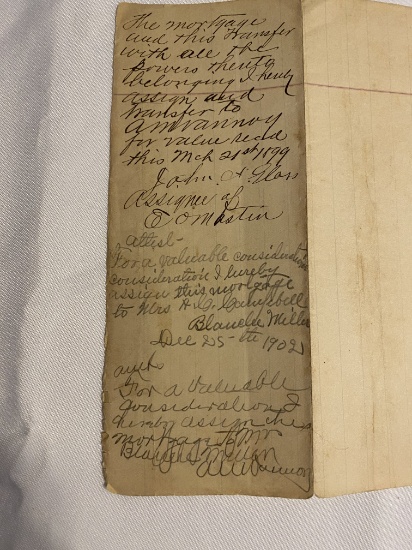 The mortgage
and this transfer
with all the
powers thereto
belonging I herby
assign and
transfer to
A M Vannoy
for value recd
this Mch 21st 1899
John A
Assignee of
E O Mastin
attest -
For a valuable consideration
consideration I hereby
assign this mortgage
to Mrs H C Campbell
Blanche Miller
Dec 25-th 1902
For a valuable
consideration I
hereby assign this
mortgage to Mrs
Blanche Miller
A M Vannoy